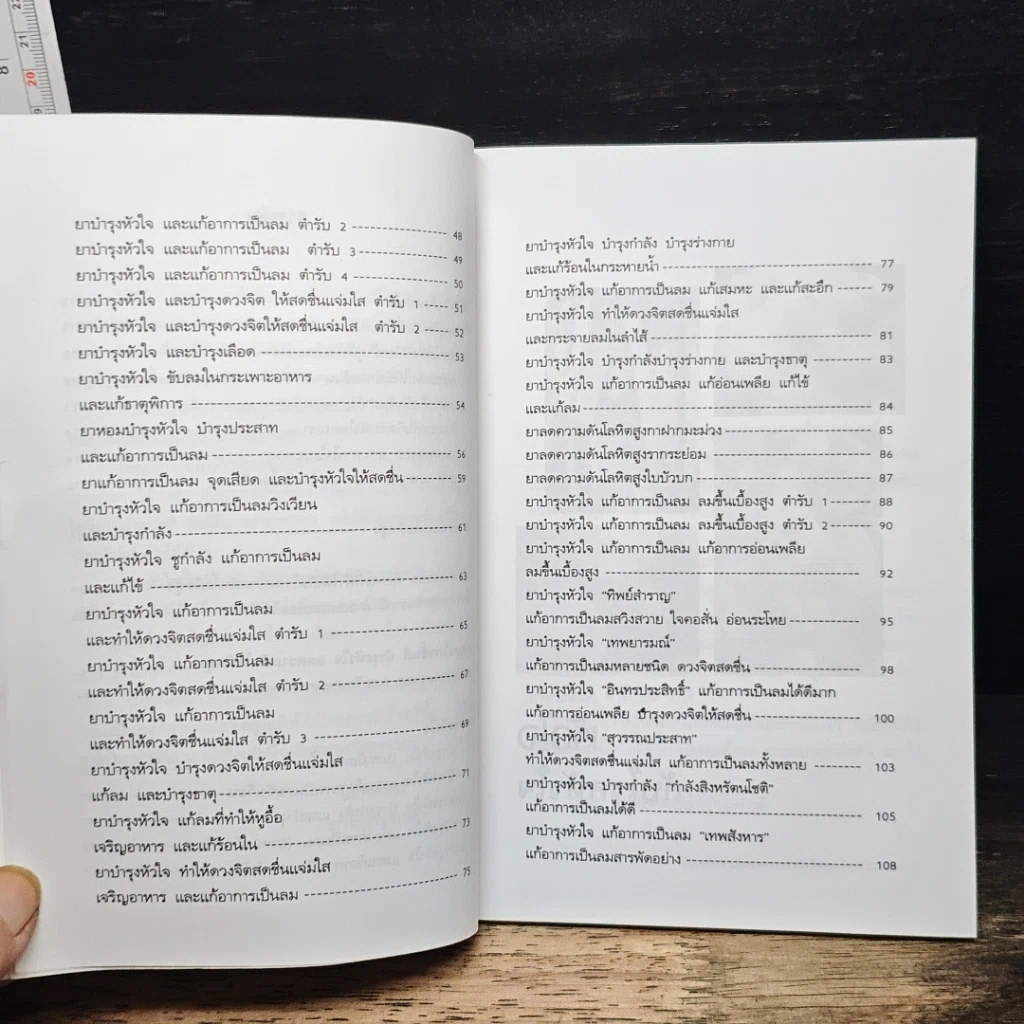 ยาบำรุงหัวใจ และแก้อาการเป็นลม ตำรับ 2 ---------------- 48
ยาบำรุงหัวใจ และแก้อาการเป็นลม ตำรับ 3 --------------- 49
ยาบำรุงหัวใจ และแก้อาการเป็นลม ตำรับ 4 ---------------- 50
ยาบำรุงหัวใจ และบำรุงดวงจิต ให้สดชื่นแจ่มใส ตำรับ 1 ----- 51
ยาบำรุงหัวใจ และบำรุงดวงจิตให้สดชื่นแจ่มใส ตำรับ 2 ----- 52
ยาบำรุงหัวใจ และบำรุงเลือด -------------------------------- 53
ยาบำรุงหัวใจ ขับลมในกระเพาะอาหาร
และแก้ธาตุพิการ -------------------------------------------- 54
ยาหอมบำรุงหัวใจ บำรุงประสาท
และแก้อาการเป็นลม ---------------------------------------- 56
ยาแก้อาการเป็นลม จุดเสียด และบำรุงหัวใจให้สดชื่น -------- 59
ยาบำรุงหัวใจ แก้อาการเป็นลมวิงเวียน
และบำรุงกำลัง --------------------------------------------- 61
ยาบำรุงหัวใจ ชูกำลัง แก้อาการเป็นลม
และแก้ไข้ --------------------------------------------------- 63
ยาบำรุงหัวใจ แก้อาการเป็นลม
และทำให้ดวงจิตสดชื่นแจ่มใส ตำรับ 1 --------------------- 65
ยาบำรุงหัวใจ แก้อาการเป็นลม
และทำให้ดวงจิตสดชื่นแจ่มใส ตำรับ 2 --------------------- 67
ยาบำรุงหัวใจ แก้อาการเป็นลม
และทำให้ดวงจิตชื่นแจ่มใส ตำรับ 3 ------------------------ 69
ยาบำรุงหัวใจ บำรุงดวงจิตให้สดชื่นแจ่มใส
แก้ลม และบำรุงธาตุ ----------------------------------------- 71
ยาบำรุงหัวใจ แก้ลมที่ทำให้หูอื้อ
เจริญอาหาร และแก้ร้อนใน --------------------------------- 73
ยาบำรุงหัวใจ ทำให้ดวงจิตสดชื่นแจ่มใส
เจริญอาหาร และแก้อาการเป็นลม -------------------------- 75
ยาบำรุงหัวใจ บำรุงกำลัง บำรุงร่างกาย
และแก้ร้อนในกระหายน้ำ ----------------------------------- 77
ยาบำรุงหัวใจ แก้อาการเป็นลม แก้เสมหะ และแก้สะอึก ------ 79
ยาบำรุงหัวใจ ทำให้ดวงจิตสดชื่นแจ่มใส
และกระจายลมในลำไส้ ------------------------------------- 81
ยาบำรุงหัวใจ บำรุงกำลังบำรุงร่างกาย และบำรุงธาตุ --------- 83
ยาบำรุงหัวใจ แก้อาการเป็นลม แก้อ่อนเพลีย แก้ไข้
และแก้ลม -------------------------------------------------- 84
ยาลดความดันโลหิตสูงกาฝากมะม่วง ------------------------ 85
ยาลดความดันโลหิตสูงรากระย่อม -------------------------- 86
ยาลดความดันโลหิตสูงใบบัวบก ----------------------------- 87
ยาบำรุงหัวใจ แก้อาการเป็นลม ลมขึ้นเบื้องสูง ตำรับ 1 ------- 88
ยาบำรุงหัวใจ แก้อาการเป็นลม ลมขึ้นเบื้องสูง ตำรับ 2 ------- 90
ยาบำรุงหัวใจ แก้อาการเป็นลม แก้อาการอ่อนเพลีย
ลมขึ้นเบื้องสูง ------------------------------------------- 92
ยาบำรุงหัวใจ "ทิพย์สำราญ"
แก้อาการเป็นลมสวิงสวาย ใจคอสั่น อ่อนระโหย ------------- 95
ยาบำรุงหัวใจ "เทพยารมณ์"
แก้อาการเป็นลมหลายชนิด ดวงจิตสดชื่น ------------------- 98
ยาบำรุงหัวใจ "อินทรประสิทธิ์" แก้อาการเป็นลมได้ดีมาก
แก้อาการอ่อนเพลีย บำรุงดวงจิตให้สดชื่น ------------------ 100
ยาบำรุงหัวใจ "สุวรรณประสาท"
ทำให้ดวงจิตสดชื่นแจ่มใส แก้อาการเป็นลมทั้งหลาย --------- 103
ยาบำรุงหัวใจ บำรุงกำลัง "กำลังสิงหรัตนโชติ"
แก้อาการเป็นลมได้ดี -------------------------------------- 105
ยาบำรุงหัวใจ แก้อาการเป็นลม "เทพสังหาร"
แก้อาการเป็นลมสารพัดอย่าง ------------------------------- 108